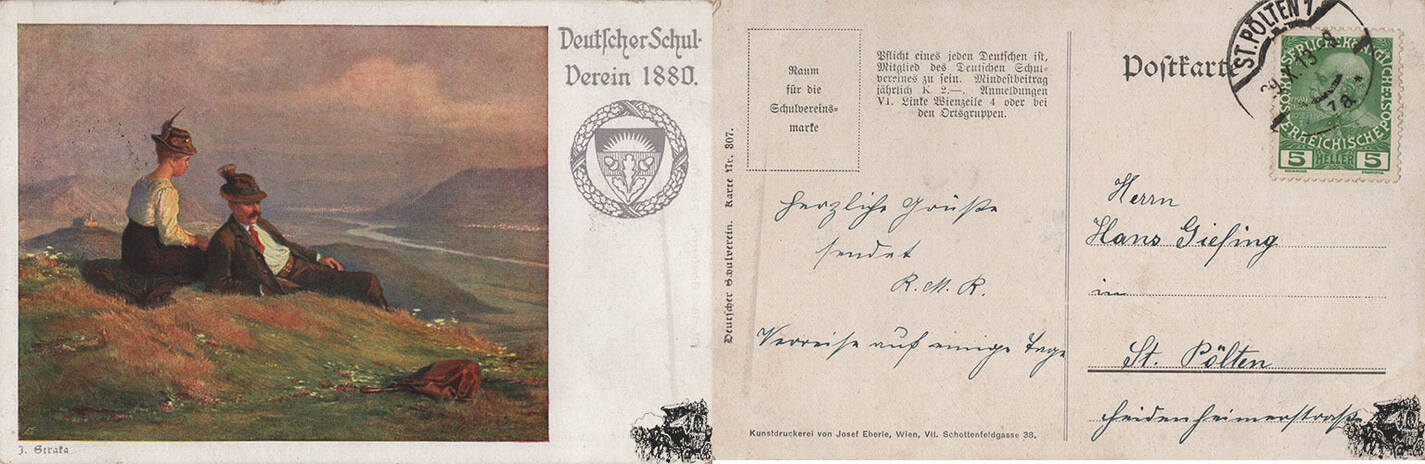 Deutscher Schul-
Verein 1880.
J. Straka
Deutscher Schulverein. Karte Nr. 307.
Raum
für die
Schulvereins-
marke
Pflicht eines jeden Deutschen ist,
Mitglied des Deutschen Schul-
vereines zu sein. Mindestbeitrag
jährlich K 2.—. Anmeldungen
VI. Linke Wienzeile 4 oder bei
den Ortsgruppen.
Herzliche Grüße
sendet
R. M. R.
Verreise auf einige Tage
Kunstdruckerei von Josef Eberle, Wien, VII. Schottenfeldgasse 38.
Postkarte
ST. PÖLTEN 1
5 HELLER 5
Herrn
Hans Giefing
in
St. Pölten
Heidenheimerstraße